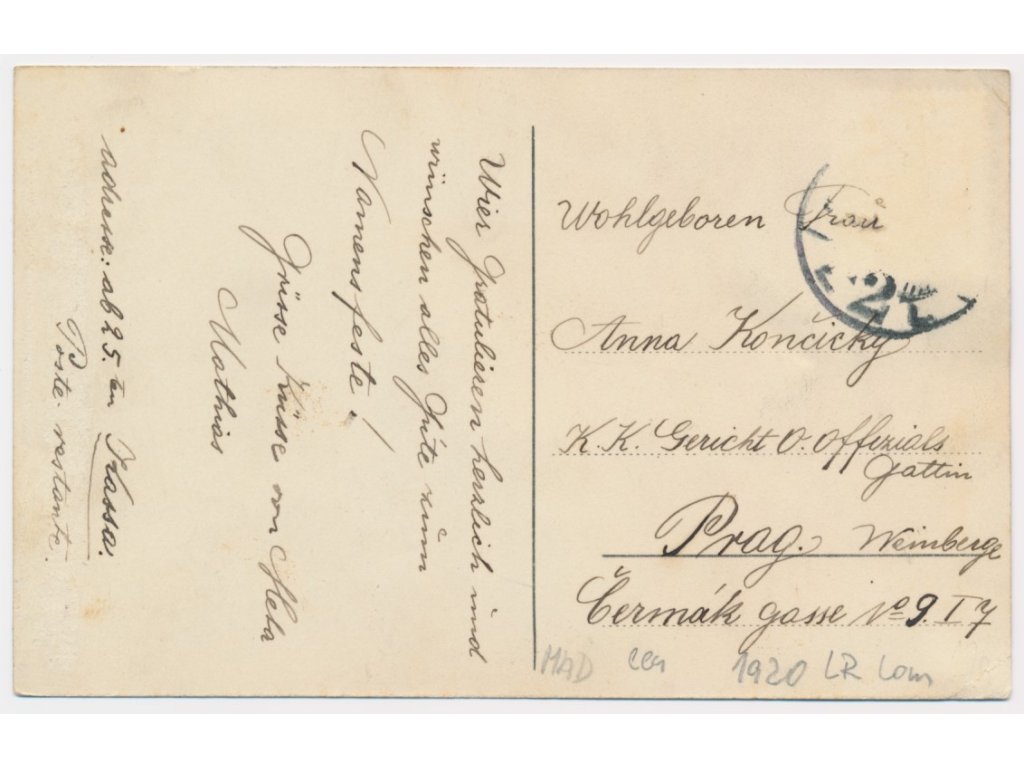 Wier Gratulieren herzlich und
wünschen alles Gute zum
Namensfeste!
Grüsse Küsse von Hela
Mathias
adresse: ab 25.ten Kassa.
Poste-restante.
Wohlgeboren Frau
Anna Končicky
K.K. Gericht O. Offizials
Gattin
Prag. Weinberge
Čermák gasse No 9. I 7
2
MAD 1920 LR Lom